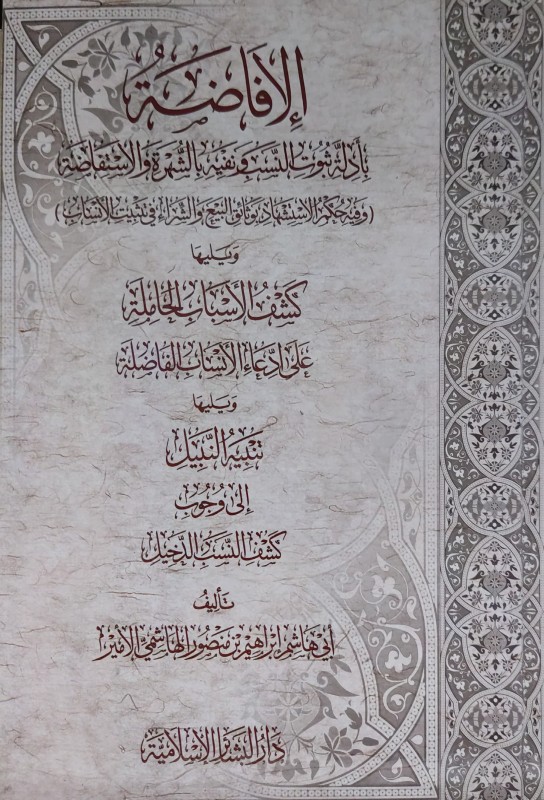 الإفاضة
بأدلة ثبوت النسب ونفيه بالشهرة والاستفاضة
(وفيه حكم الاستشهاد بوثائق البيع والشراء في تثبيت الأنساب)
ويليها
كشف الأسباب الحاملة
على ادعاء الأنساب الفاضلة
ويليها
تنبيه النبيل
إلى وجوب
كشف النسب الدخيل
تأليف
أبي هاشم إبراهيم بن منصور الهاشمي الأمير
دار البشائر الإسلامية